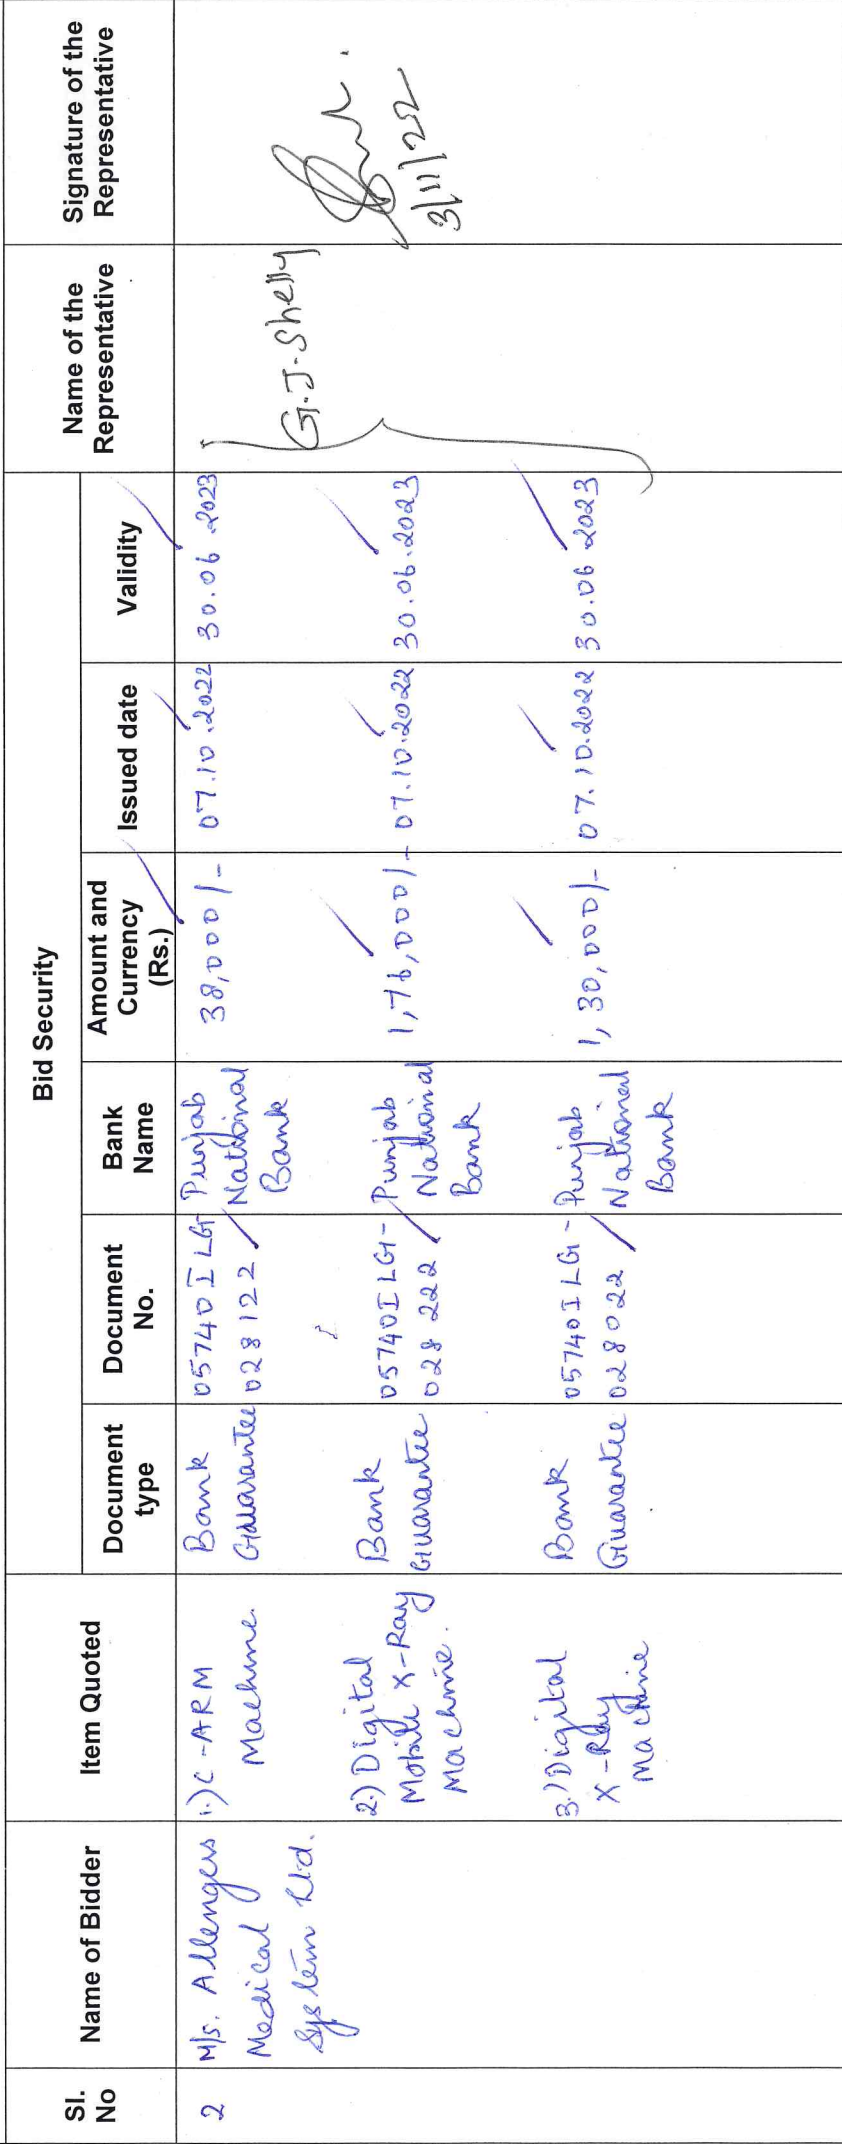 Sl. No
Name of Bidder
Item Quoted
Bid Security
Document type
Document No.
Bank Name
Amount and Currency (Rs.)
Issued date
Validity
Name of the Representative
Signature of the Representative
2
M/s. Allengers
Medical
System Ltd.
1.) C-ARM
Machine.
Bank
Guarantee
05740ILG
028122
Punjab
National
Bank
38,000/-
07.10.2022
30.06.2023
G.J. Shelly
3/11/22
2.) Digital
Mobile X-Ray
Machine.
Bank
Guarantee
05740ILG-
028222
Punjab
National
Bank
1,76,000/-
07.10.2022
30.06.2023
3.) Digital
X-Ray
Machine
Bank
Guarantee
05740ILG-
028022
Punjab
National
Bank
1,30,000/-
07.10.2022
30.06.2023